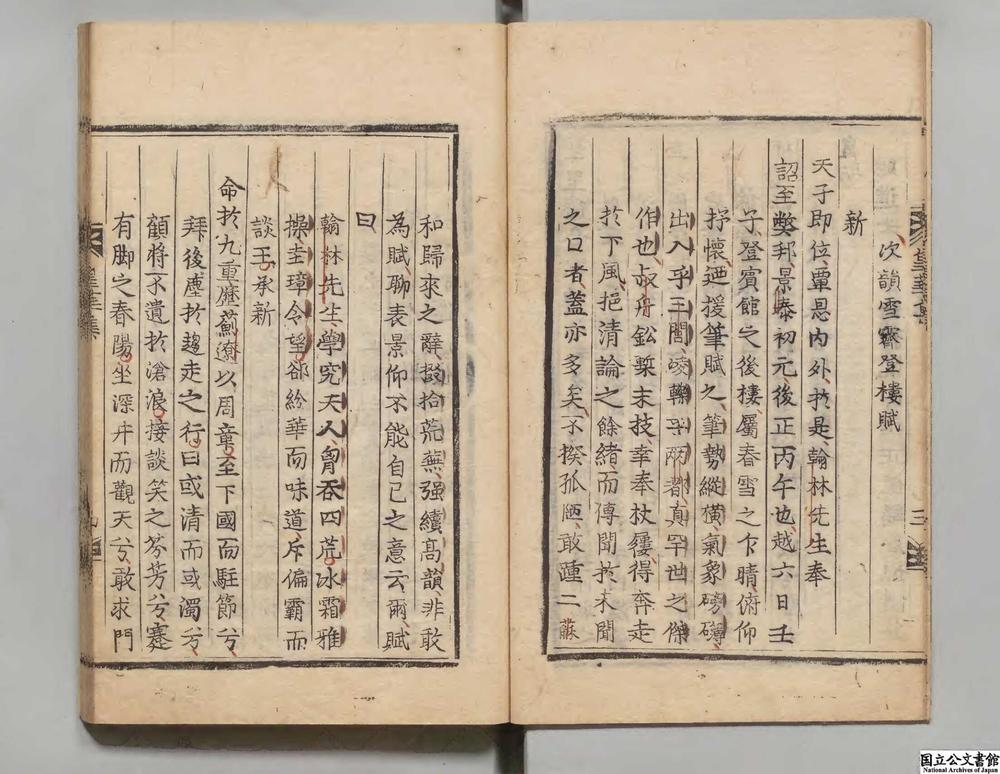 次韻雪霽登樓賦
新
天子即位覃恩内外於是翰林先生奉
詔至弊邦景泰初元後正丙午也越六日壬
子登賓館之後樓屬春雪之乍晴俯仰
抒懷迺援筆賦之筆勢縱横氣象磅礴
出入乎三閭凌轢乎兩都真罕世之傑
作也叔舟鈆槧末技幸奉杖屨得奔走
於下風挹清論之餘緒而傳聞於未聞
之口者蓋亦多矣不揆孤陋敢踵二蘇
和歸來之辭掇拾荒蕪强續高韻非敢
為賦聊表景仰不能自已之意云爾賦
曰
翰林先生學究天人胷吞四荒冰霜雅
操圭璋令望郤紛華而味道斥偏霸而
談王承新
命於九重歷薊遼以周章至下國而駐節兮
拜後塵於趨走之行曰或清而或濁兮
顧將不遺於滄浪接談笑之芬芳兮蹇
有脚之春陽坐深井而觀天兮敢求門
皇華集
三
皇華集
国立公文書館
National Archives of Japan